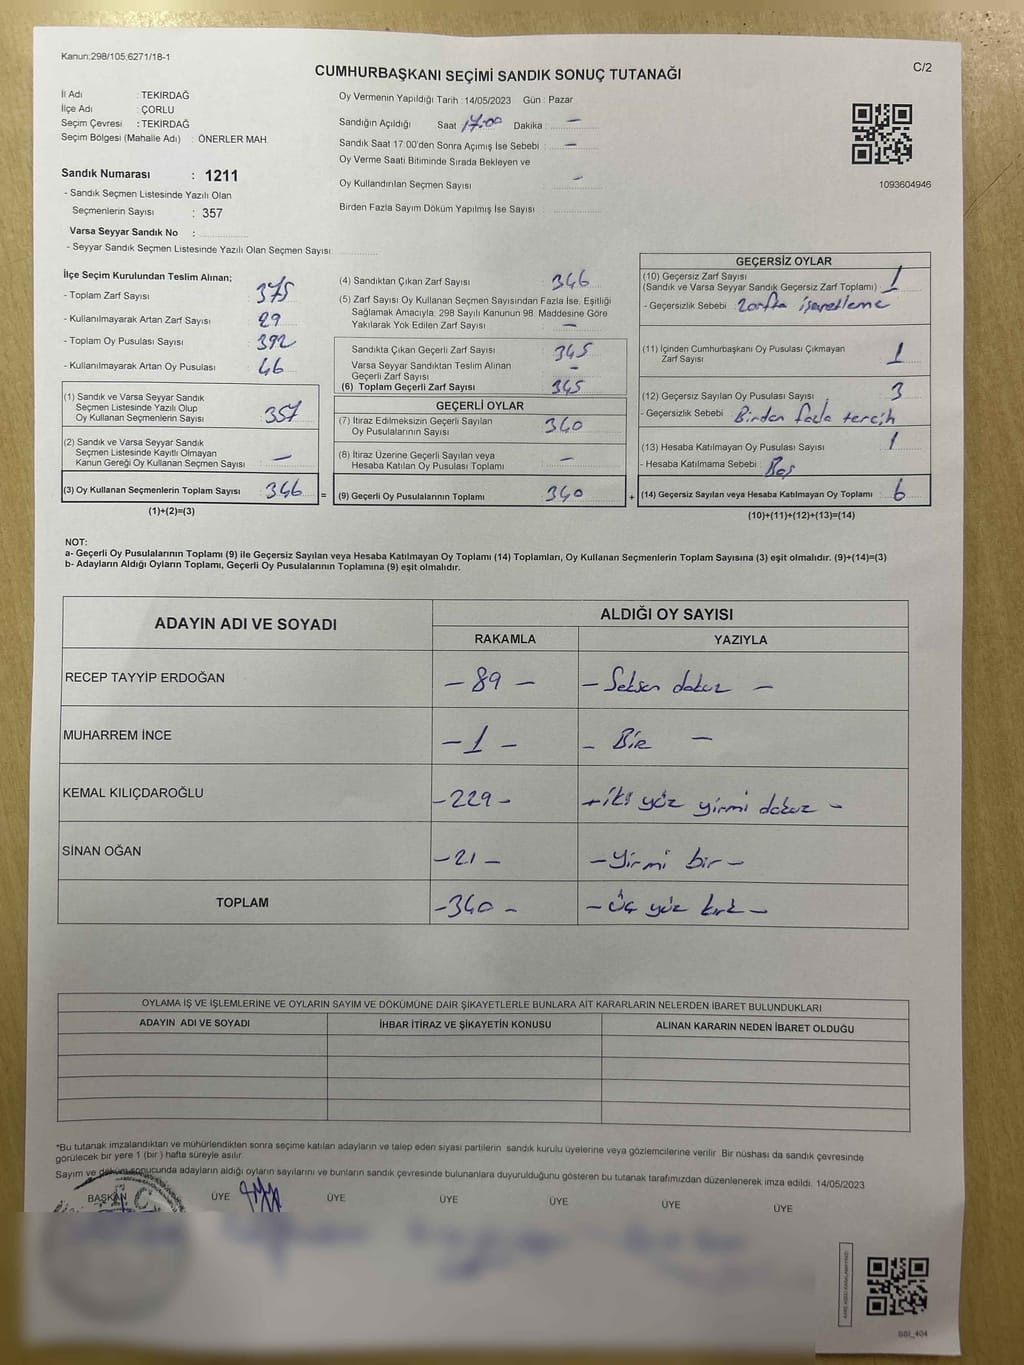 Kanun:298/105;6271/18-1
C/2
CUMHURBAŞKANI SEÇİMİ SANDIK SONUÇ TUTANAĞI
İl Adı : TEKİRDAĞ
İlçe Adı : ÇORLU
Seçim Çevresi : TEKİRDAĞ
Seçim Bölgesi (Mahalle Adı) : ÖNERLER MAH.
Sandık Numarası : 1211
- Sandık Seçmen Listesinde Yazılı Olan
Seçmenlerin Sayısı : 357
Varsa Seyyar Sandık No :
- Seyyar Sandık Seçmen Listesinde Yazılı Olan Seçmen Sayısı:
Oy Vermenin Yapıldığı Tarih :14/05/2023 Gün : Pazar
Sandığın Açıldığı Saat 17:00 Dakika : —
Sandık Saat 17:00'den Sonra Açımış İse Sebebi : —
Oy Verme Saati Bitiminde Sırada Bekleyen ve
Oy Kullandırılan Seçmen Sayısı : —
Birden Fazla Sayım Döküm Yapılmış İse Sayısı :
1093604946
İlçe Seçim Kurulundan Teslim Alınan;
- Toplam Zarf Sayısı : 375
- Kullanılmayarak Artan Zarf Sayısı : 29
- Toplam Oy Pusulası Sayısı : 392
- Kullanılmayarak Artan Oy Pusulası : 46
(1) Sandık ve Varsa Seyyar Sandık
Seçmen Listesinde Yazılı Olup
Oy Kullanan Seçmenlerin Sayısı : 357
(2) Sandık ve Varsa Seyyar Sandık
Seçmen Listesinde Kayıtlı Olmayan
Kanun Gereği Oy Kullanan Seçmen Sayısı : —
(3) Oy Kullanan Seçmenlerin Toplam Sayısı : 346 =
(1)+(2)=(3)
(4) Sandıktan Çıkan Zarf Sayısı : 346
(5) Zarf Sayısı Oy Kullanan Seçmen Sayısından Fazla İse, Eşitliği
Sağlamak Amacıyla, 298 Sayılı Kanunun 98. Maddesine Göre
Yakılarak Yok Edilen Zarf Sayısı : —
Sandıkta Çıkan Geçerli Zarf Sayısı : 345
Varsa Seyyar Sandıktan Teslim Alınan
Geçerli Zarf Sayısı : —
(6) Toplam Geçerli Zarf Sayısı : 345
GEÇERLİ OYLAR
(7) İtiraz Edilmeksizin Geçerli Sayılan
Oy Pusulalarının Sayısı : 340
(8) İtiraz Üzerine Geçerli Sayılan veya
Hesaba Katılan Oy Pusulası Toplamı : —
(9) Geçerli Oy Pusulalarının Toplamı : 340 +
GEÇERSİZ OYLAR
(10) Geçersiz Zarf Sayısı
(Sandık ve Varsa Seyyar Sandık Geçersiz Zarf Toplamı) : 1
- Geçersizlik Sebebi : zarfta işaretleme
(11) İçinden Cumhurbaşkanı Oy Pusulası Çıkmayan
Zarf Sayısı : 1
(12) Geçersiz Sayılan Oy Pusulası Sayısı : 3
- Geçersizlik Sebebi : Birden fazla tercih
(13) Hesaba Katılmayan Oy Pusulası Sayısı : 1
- Hesaba Katılmama Sebebi : Boş
(14) Geçersiz Sayılan veya Hesaba Katılmayan Oy Toplamı : 6
(10)+(11)+(12)+(13)=(14)
NOT:
a- Geçerli Oy Pusulalarının Toplamı (9) ile Geçersiz Sayılan veya Hesaba Katılmayan Oy Toplamı (14) Toplamları, Oy Kullanan Seçmenlerin Toplam Sayısına (3) eşit olmalıdır. (9)+(14)=(3)
b- Adayların Aldığı Oyların Toplamı, Geçerli Oy Pusulalarının Toplamına (9) eşit olmalıdır.
ADAYIN ADI VE SOYADI
ALDIĞI OY SAYISI
RAKAMLA YAZIYLA
RECEP TAYYİP ERDOĞAN – 89 – – Seksen dokuz –
MUHARREM İNCE – 1 – – Bir –
KEMAL KILIÇDAROĞLU – 229 – – iki yüz yirmi dokuz –
SİNAN OĞAN – 21 – – Yirmi bir –
TOPLAM – 340 – – Üç yüz kırk –
OYLAMA İŞ VE İŞLEMLERİNE VE OYLARIN SAYIM VE DÖKÜMÜNE DAİR ŞİKAYETLERLE BUNLARA AİT KARARLARIN NELERDEN İBARET BULUNDUKLARI
ADAYIN ADI VE SOYADI İHBAR İTİRAZ VE ŞİKAYETİN KONUSU ALINAN KARARIN NEDEN İBARET OLDUĞU
*Bu tutanak imzalandıktan ve mühürlendikten sonra seçime katılan adayların ve talep eden siyasi partilerin sandık kurulu üyelerine veya gözlemcilerine verilir. Bir nüshası da sandık çevresinde
görülecek bir yere 1 (bir ) hafta süreyle asılır.
Sayım ve döküm sonucunda adayların aldığı oyların sayılarını ve bunların sandık çevresinde bulunanlara duyurulduğunu gösteren bu tutanak tarafımızdan düzenlenerek imza edildi. 14/05/2023
BAŞKAN ÜYE ÜYE ÜYE ÜYE ÜYE ÜYE
SBI_404